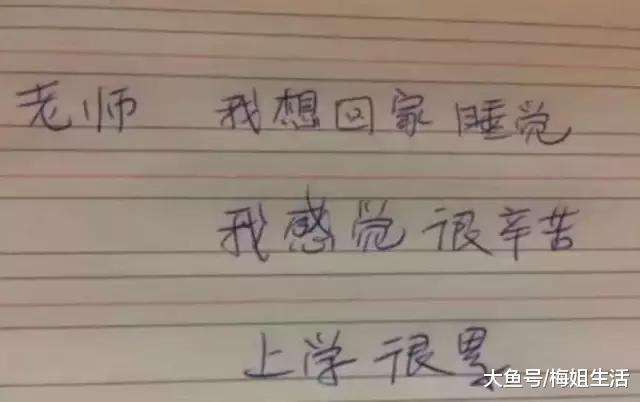 老师 我想回家睡觉
我感觉很辛苦
上学很累
大鱼号/梅姐生活